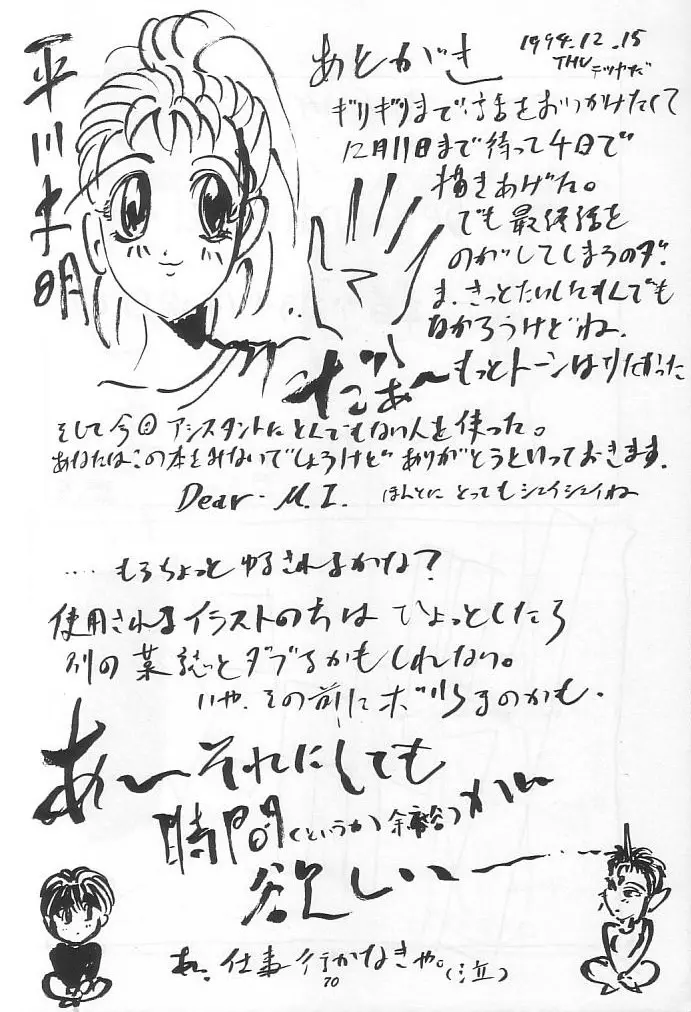 あとがき
1994.12.15
THU
テツヤだ
ギリギリまで話をおいかけたくて
12月11日まで待って4日で
描きあげた。
でも最終話を
のがしてしまうのダ。
ま、きっとたいしたもんでも
なかろうけどね。
だぁ〜もっとトーンはりたかった
そして今回アシスタントにとんでもない人を使った。
あなたはこの本をみないでしょうけどありがとうといっておきます。
Dear・M.I. ほんとに とっても シェイシェイね
‥‥もうちょっとゆるされるかな？
使用されるイラストのうちは ひょっとしたら
別の 誌とダブるかもしれない。
いや、その前にボツになるのかも・
あ〜それにしても
時間(というか余裕)がほ
欲しい―
あ、仕事行かなきゃ。(泣)
70